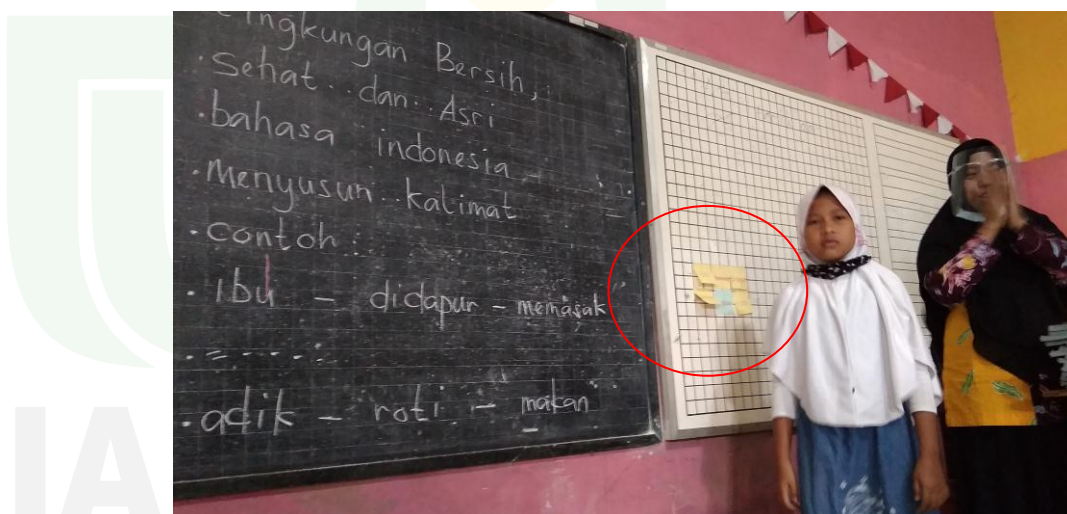 Lingkungan Bersih,
. Sehat . . dan . . Asri
. bahasa indonesia
. Menyusun . . kalimat
. contoh :
. Ibu – didapur – memasak
. = . . . . .
. adik – roti – makan
IA